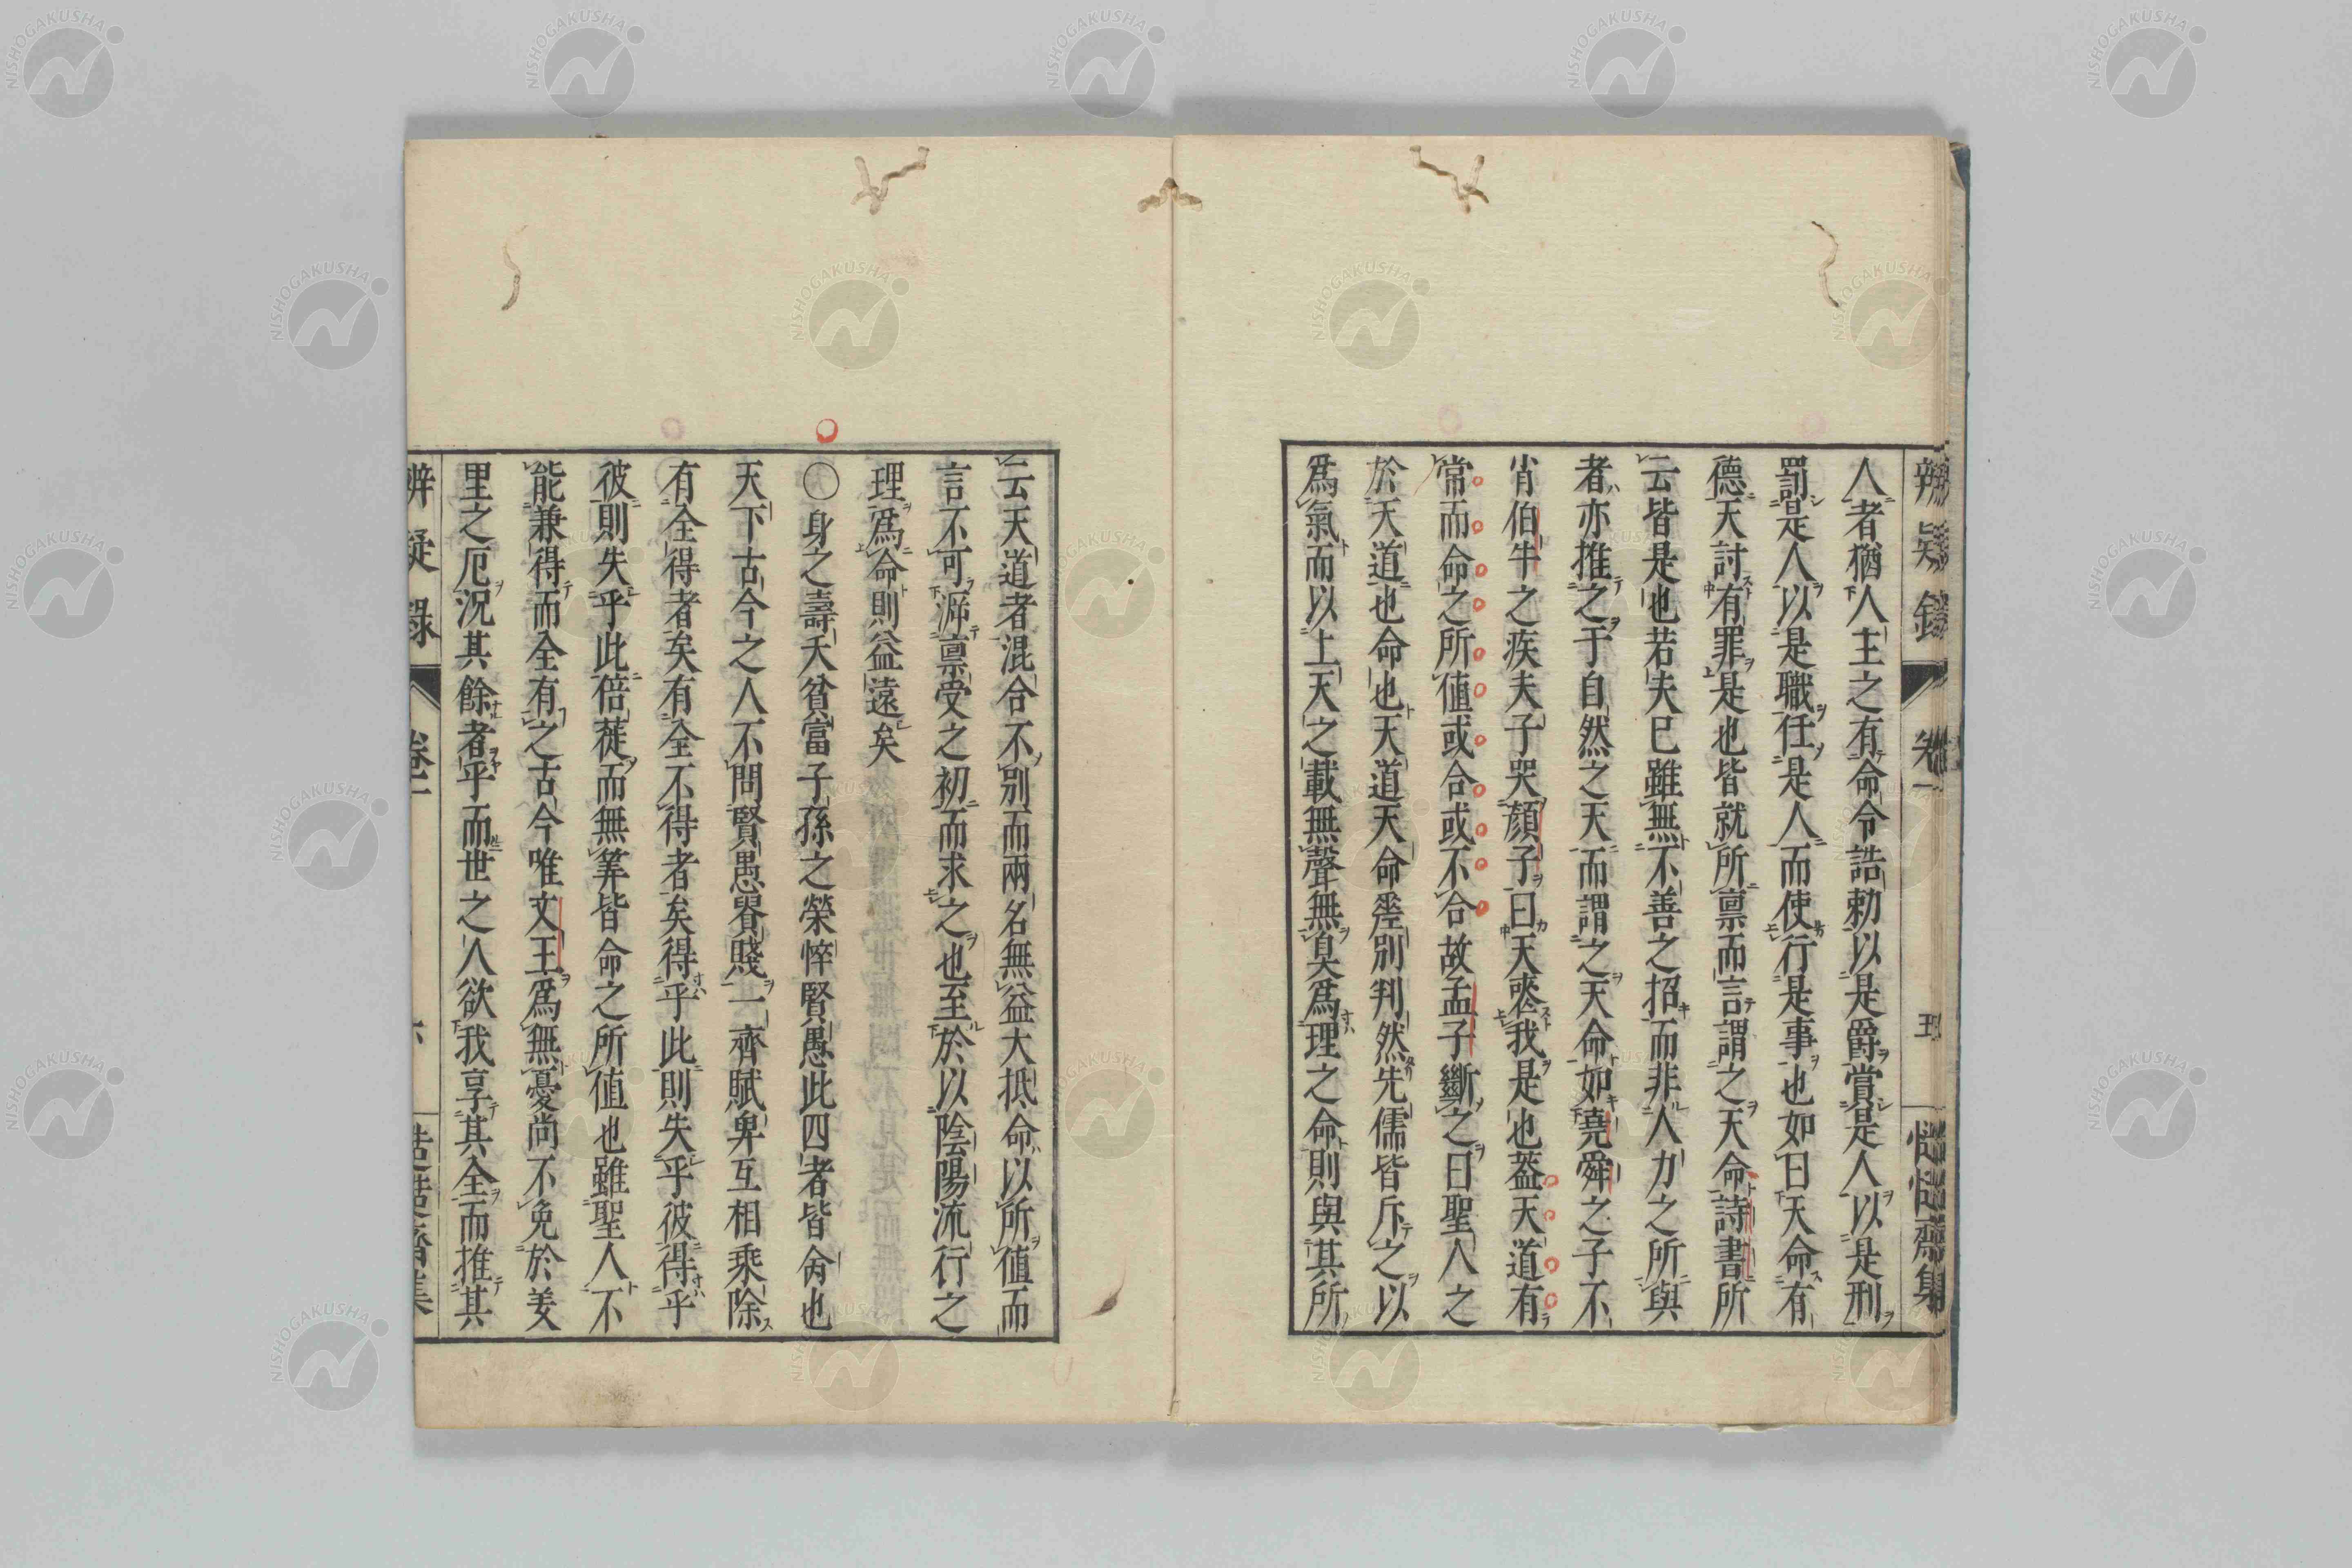 人者猶人主之有命令誥勅以是爵賞是人以是刑
罰是人以是職任是人而使行是事也如曰天命有
德天討有罪是也皆就所禀而言謂之天命詩書所
云皆是也若夫已雖無不善之招而非人力之所與
者亦推之于自然之天而謂之天命如堯舜之子不
肖伯牛之疾夫子哭顏子曰天喪我是也蓋天道有
常而命之所値或合或不合故孟子斷之曰聖人之
於天道也命也天道天命差別判然先儒皆斥之以
爲氣而以上天之載無聲無臭爲理之命則與其所
云天道者混合不別而兩名無益大抵命以所値而
言不可遡禀受之初而求之也至於以陰陽流行之
理爲命則益遠矣
〇身之壽夭貧富子孫之榮悴賢愚此四者皆命也
天下古今之人不問賢愚貴賤一齊賦畀互相乘除
有全得者矣有全不得者矣得乎此則失乎彼得乎
彼則失乎此倍蓰而無筭皆命之所値也雖聖人不
能兼得而全有之古今唯文王爲無憂尚不免於羑
里之厄況其餘者乎而世之人欲我享其全而推其
辨疑錄
卷一
五
慥慥齋集
辨疑錄
卷一
六
慥慥齋集
NISHOGAKUSHA